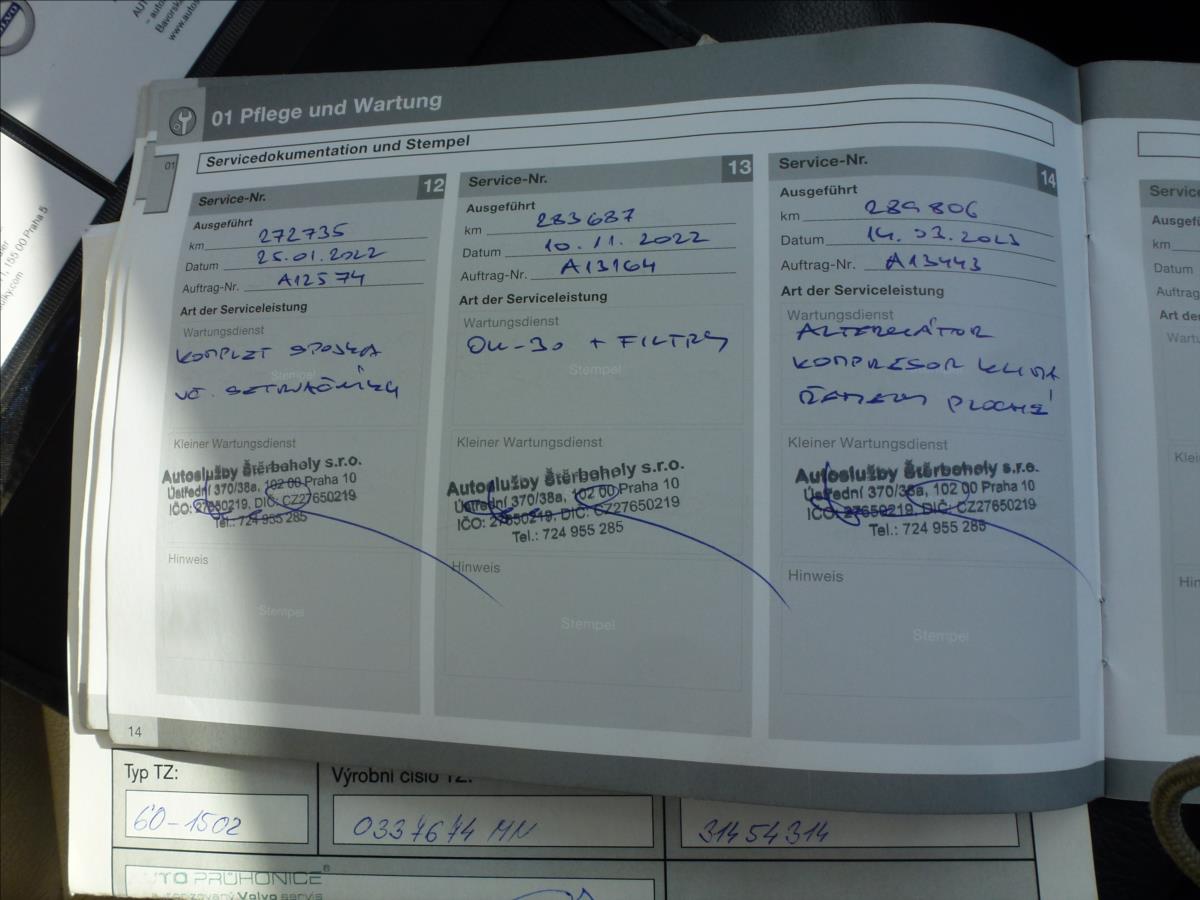 01 Pflege und Wartung
01
Servicedokumentation und Stempel
Service-Nr. 12
Ausgeführt
km 272735
Datum 25.01.2022
Auftrag-Nr. A12574
Art der Serviceleistung
Wartungsdienst
KOMPLET SPOJKA
Stempel
VČ. SETRVAČNÍKU
Kleiner Wartungsdienst
Autoslužby Štěrboholy s.r.o.
Ústřední 370/38a, 102 00 Praha 10
IČO: 27650219, DIČ: CZ27650219
Tel.: 724 955 285
Hinweis
Stempel
Service-Nr. 13
Ausgeführt
km 283687
Datum 10.11.2022
Auftrag-Nr. A13164
Art der Serviceleistung
Wartungsdienst
+ FILTRY
Stempel
Kleiner Wartungsdienst
Autoslužby Štěrboholy s.r.o.
Ústřední 370/38a, 102 00 Praha 10
IČO: 27650219, DIČ: CZ27650219
Tel.: 724 955 285
Hinweis
Stempel
Service-Nr. 14
Ausgeführt
km 289806
Datum 14.03.2023
Auftrag-Nr. A13443
Art der Serviceleistung
Wartungsdienst
ALTERNÁTOR
KOMPRESOR KLIMA
ŘEMENY PLOCHÉ
Kleiner Wartungsdienst
Autoslužby Štěrboholy s.r.o.
Ústřední 370/38a, 102 00 Praha 10
IČO: 27650219, DIČ: CZ27650219
Tel.: 724 955 285
Hinweis
Stempel
14
Service
km
Datum
Typ TZ:
60-1502
Výrobní číslo TZ:
0337674 MN
31454314
AUTO PRŮHONICE®
Volvo servis
155 00 Praha 5